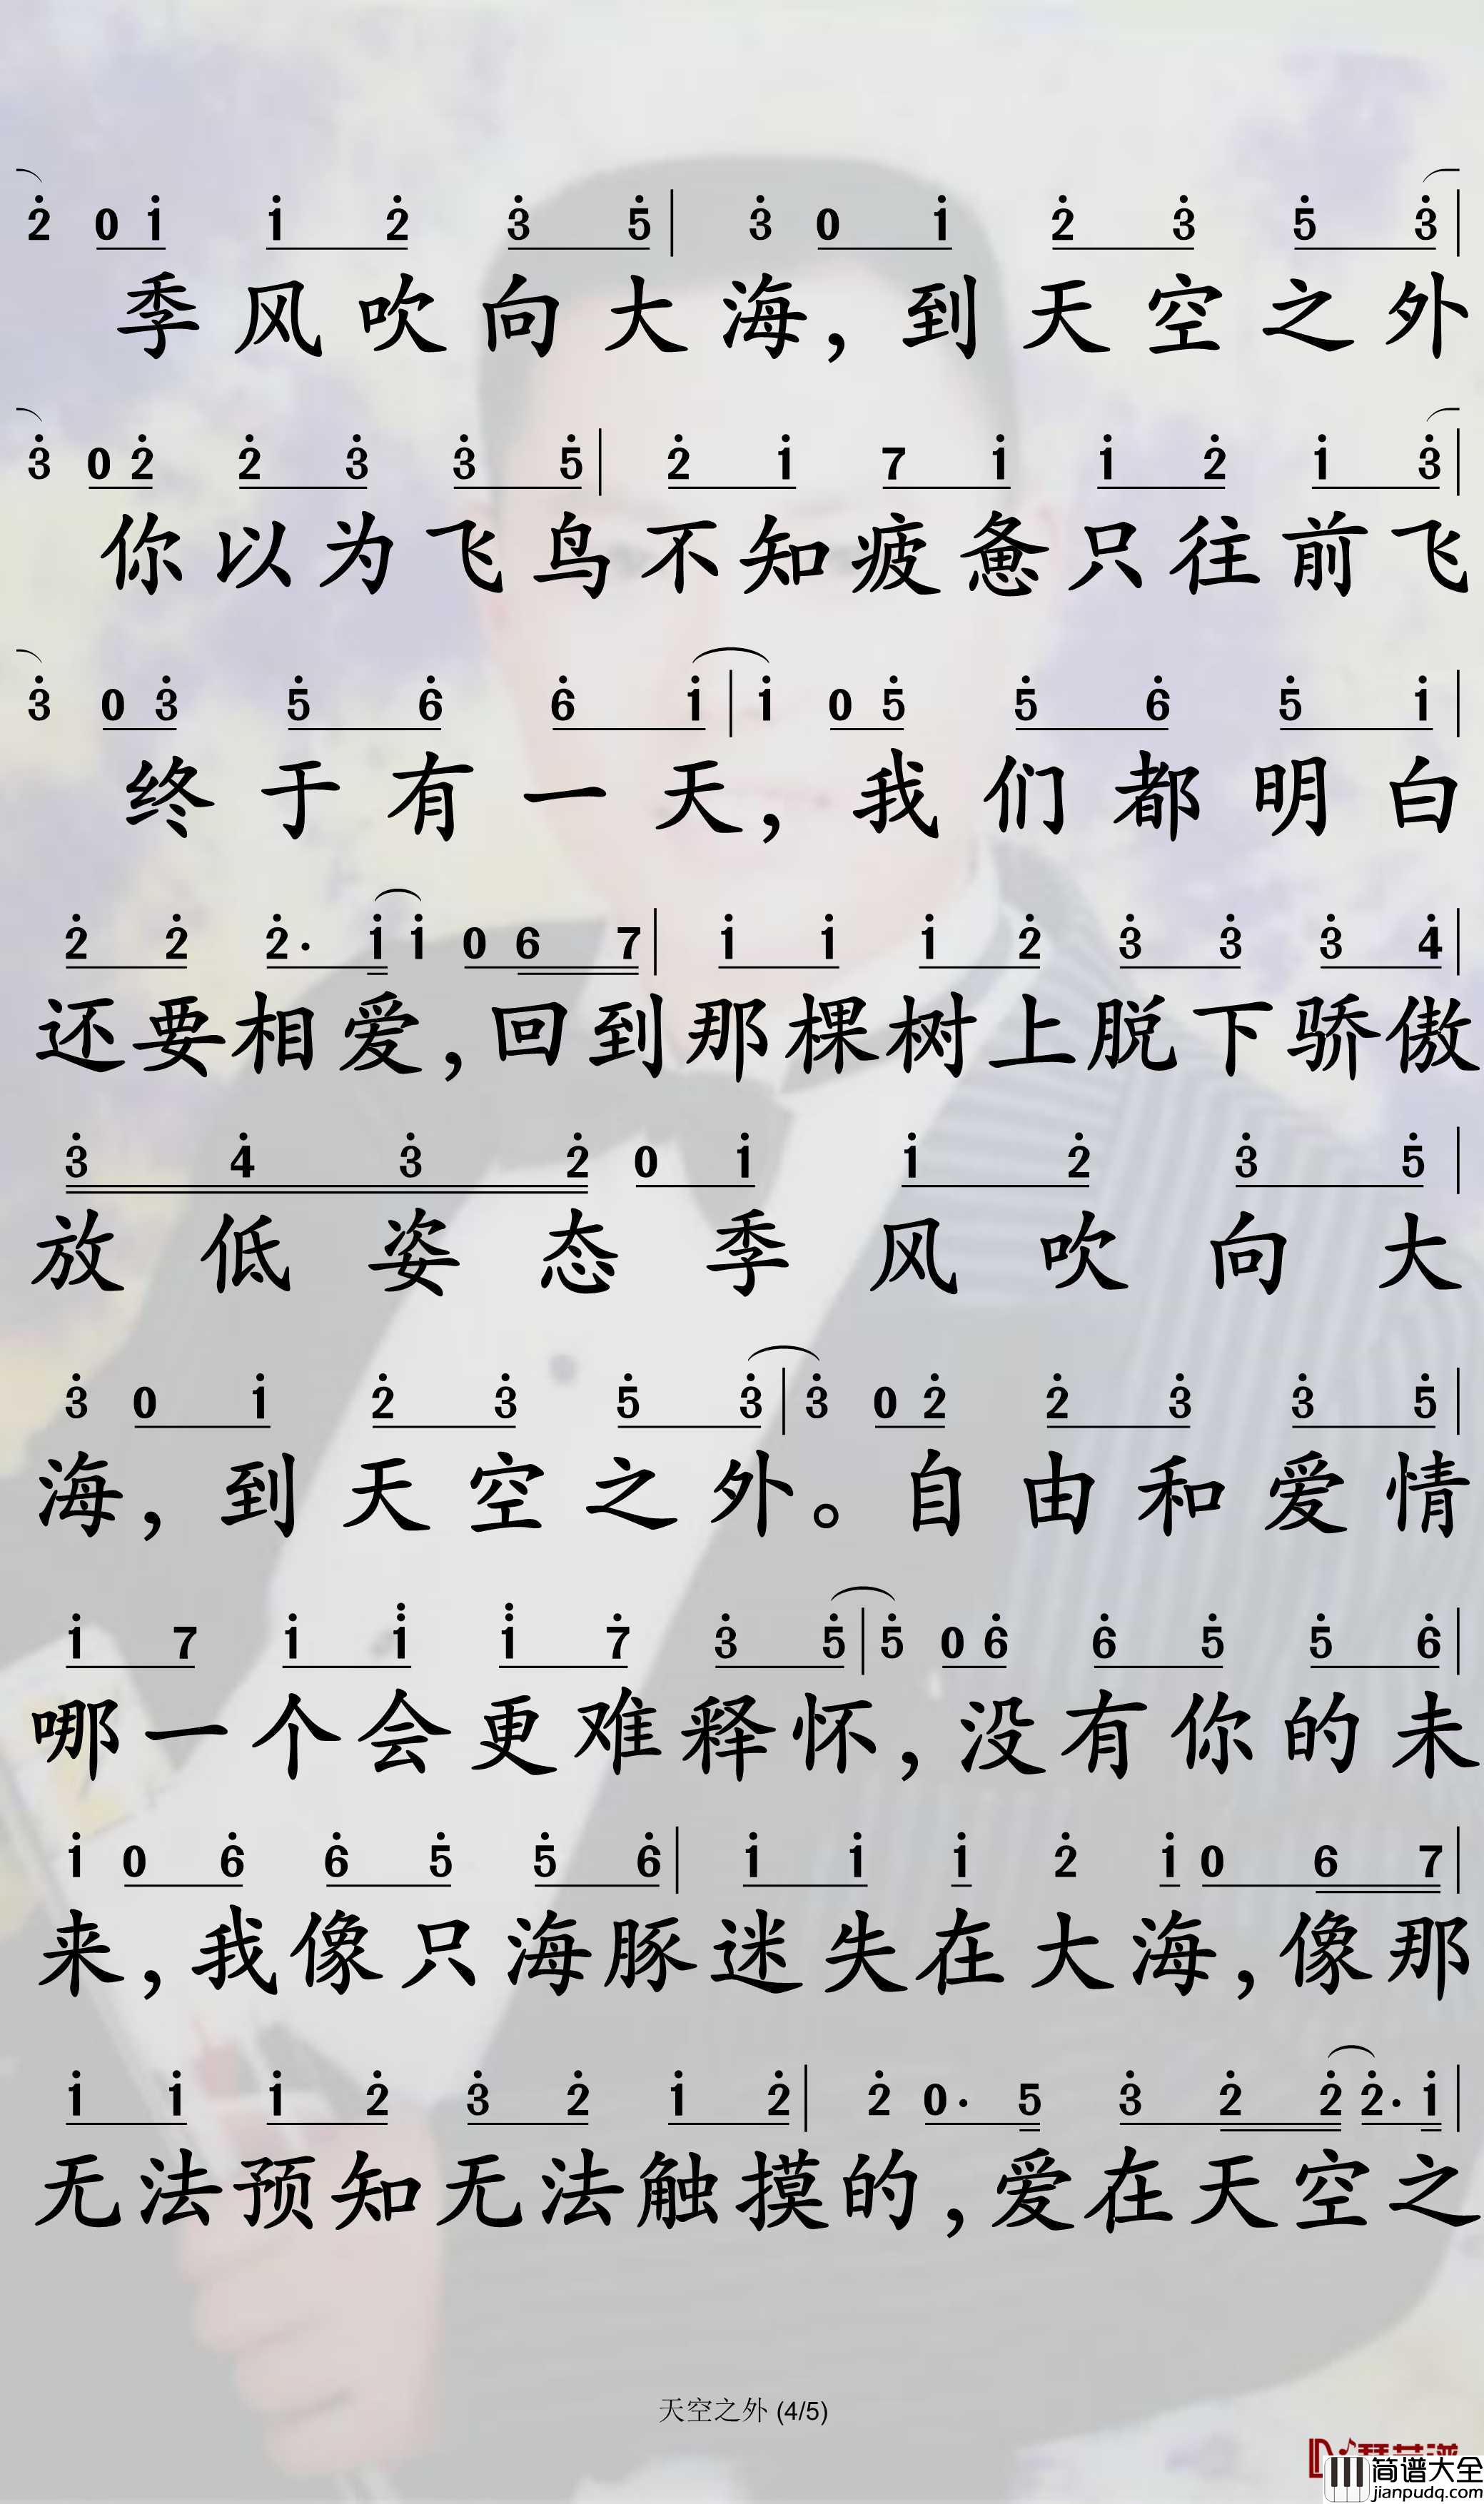 2̇ 0 1̇ 1̇ 2̇ 3̇ 5̇ | 3̇ 0 1̇ 2̇ 3̇ 5̇ 3̇ |
季风吹向大海，到天空之外
3̇ 0 2̇ 2̇ 3̇ 3̇ 5̇ | 2̇ 1̇ 7 1̇ 1̇ 2̇ 1̇ 3̇ |
你以为飞鸟不知疲惫只往前飞
3̇ 0 3̇ 5̇ 6̇ 6̇ 1̇ | 1̇ 0 5̇ 5̇ 6̇ 5̇ 1̇ |
终于有一天，我们都明白
2̇ 2̇ 2̇· 1̇ 1̇ 0 6 7 | 1̇ 1̇ 1̇ 2̇ 3̇ 3̇ 3̇ 4̇ |
还要相爱，回到那棵树上脱下骄傲
3̇ 4̇ 3̇ 2̇ 0 1̇ 1̇ 2̇ 3̇ 5̇ |
放低姿态季风吹向大
3̇ 0 1̇ 2̇ 3̇ 5̇ 3̇ | 3̇ 0 2̇ 2̇ 3̇ 3̇ 5̇ |
海，到天空之外。自由和爱情
1̇ 7 1̇ 1̇̇ 1̇̇ 7̇ 3̇ 5̇ | 5̇ 0 6̇ 6̇ 5̇ 5̇ 6̇ |
哪一个会更难释怀，没有你的未
1̇ 0 6̇ 6̇ 5̇ 5̇ 6̇ | 1̇ 1̇ 1̇ 2̇ 1̇ 0 6 7 |
来，我像只海豚迷失在大海，像那
1̇ 1̇ 1̇ 2̇ 3̇ 2̇ 1̇ 2̇ | 2̇ 0· 5 3̇ 2̇ 2̇ 2̇· 1̇ |
无法预知无法触摸的，爱在天空之
天空之外 (4/5)
简谱大全
jianpudq.com